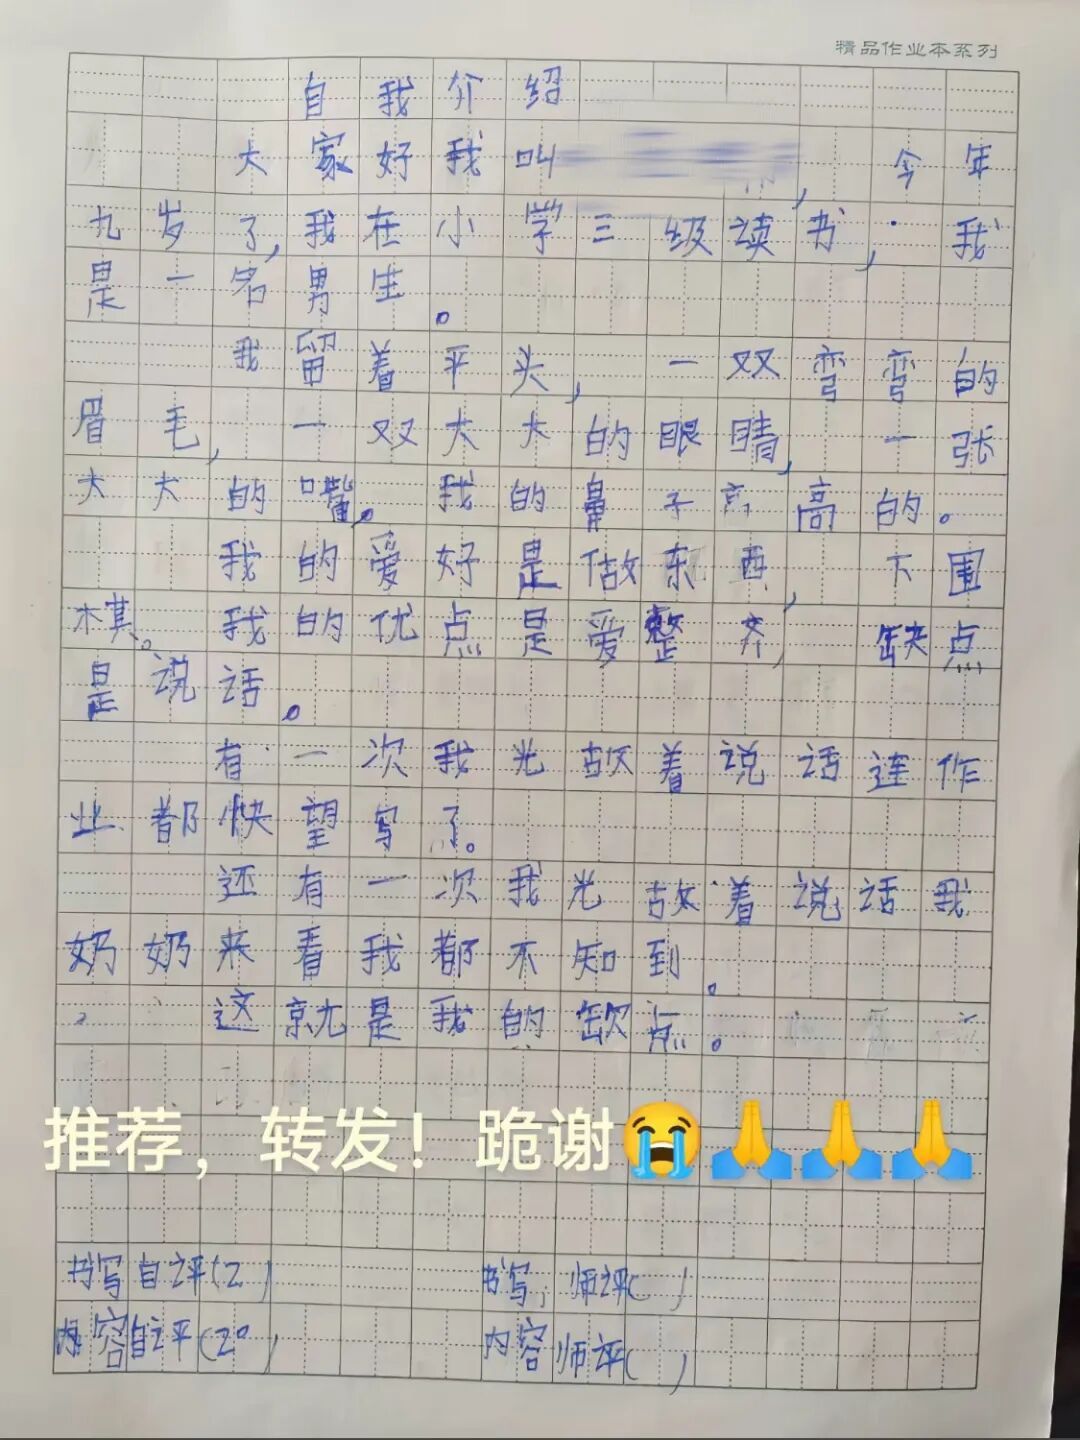 精品作业本系列
自我介绍
大家好我叫，今年
九岁了，我在小学三级读书，我
是一名男生。
我留着平头，一双弯弯的
眉毛，一双大大的眼睛，一张
大大的嘴。我的鼻子高高的。
我的爱好是做东西，下围
棋。我的优点是爱整齐，缺点
是说话。
有一次我光故着说话连作
业都快望写了。
还有一次我光故着说话我
奶奶来看我都不知到。
这就是我的缺点。
推荐，转发！跪谢😭🙏🙏🙏
书写自评(2) 书写，师评( )
内容自评(20) 内容师评( )